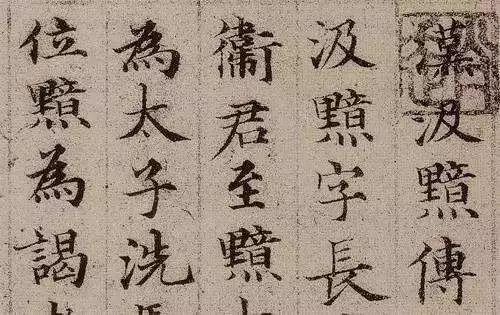 漢汲黯傳
汲黯字長
衛君至黯
為太子洗
位黯為謁